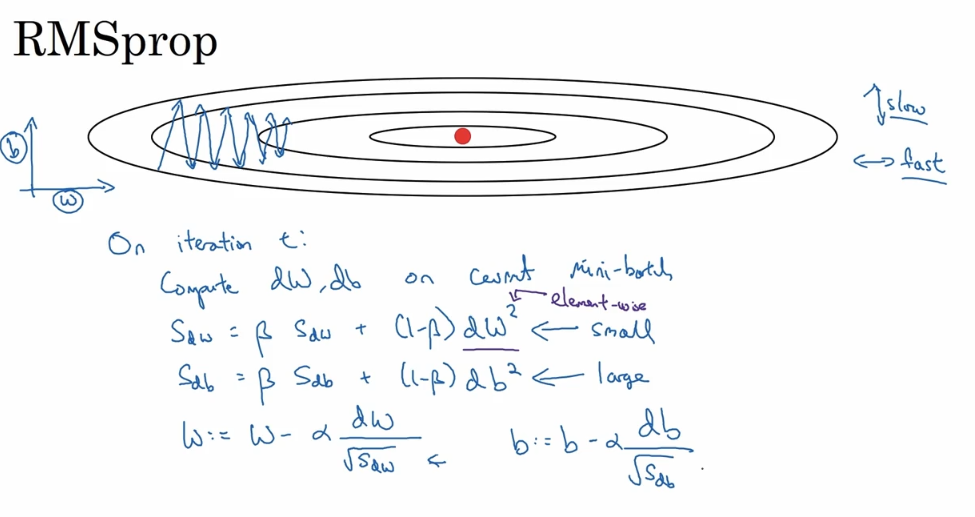 RMSprop
↕ slow
↔ fast
b
w
On iteration t:
Compute dW, db on current mini-batch
element-wise
S_dw = β S_dw + (1-β) dW² ← small
S_db = β S_db + (1-β) db² ← large
W := W - α dW/√S_dw ← b := b - α db/√S_db